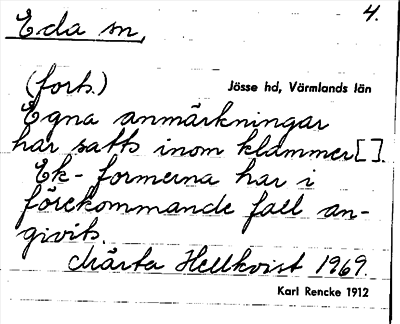 Eda sn,
4.
(forts.)
Jösse hd, Värmlands län
Egna anmärkningar
har satts inom klammer[ ].
Ek-formerna har i
förekommande fall an-
givits.
Märta Hellkvist 1969.
Karl Rencke 1912